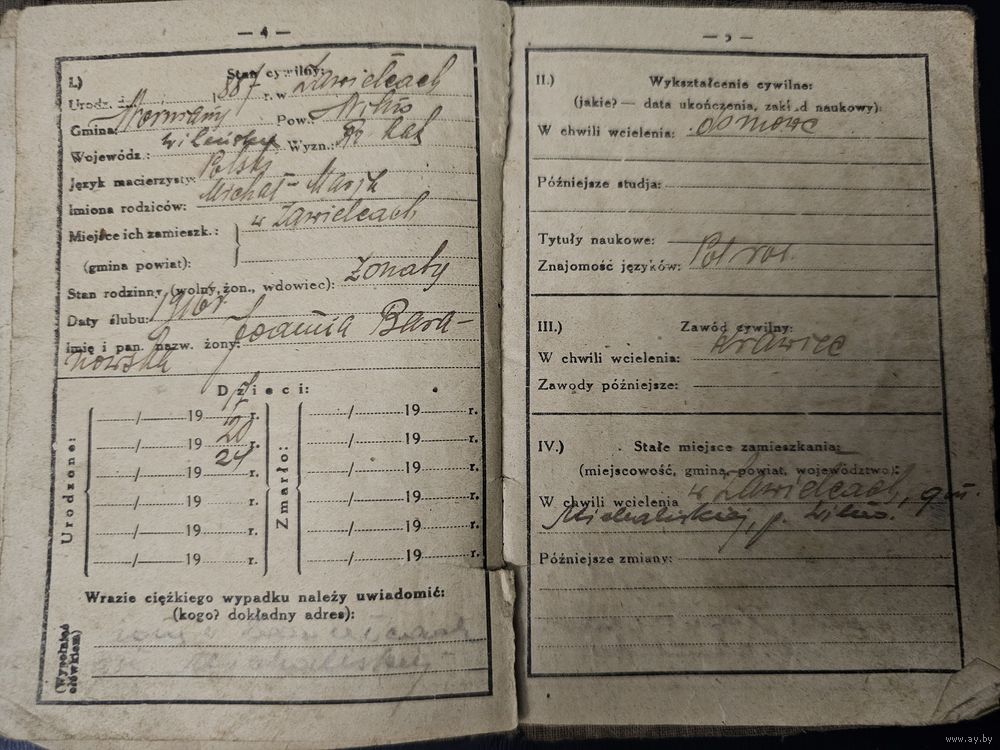 — 4 —
I.) Stan cywilny:
Urodz. 1887 r. w Zawielcach
Gmina: Pow.: Wilno
Wojewódz.: Wileńskie Wyzn.: Rz. Kat
Język macierzysty: Polski
Imiona rodziców: Michał-Marja
Miejsce ich zamieszk.: w Zawielcach
(gmina powiat):
Stan rodzinny (wolny, żon., wdowiec): żonaty
Daty ślubu: 1916 r
imię i pan. nazw. żony: Joanna Bara-
nowska
Dzieci:
Urodzone:
—/— 19 17 r.
—/— 19 20 r.
—/— 19 24 r.
—/— 19 r.
—/— 19 r.
—/— 19 r.
Zmarło:
—/— 19 r.
—/— 19 r.
—/— 19 r.
—/— 19 r.
—/— 19 r.
—/— 19 r.
Wrazie ciężkiego wypadku należy uwiadomić:
(kogo? dokładny adres):
(Wypełniać
ołówkiem)
— 5 —
II.) Wykształcenie cywilne:
(jakie? — data ukończenia, zakład naukowy):
W chwili wcielenia: domowe
Późniejsze studja:
Tytuły naukowe:
Znajomość języków: Pol ros.
III.) Zawód cywilny:
W chwili wcielenia: Krawiec
Zawody późniejsze:
IV.) Stałe miejsce zamieszkania:
(miejscowość, gmina, powiat, województwo):
W chwili wcielenia w Zawielcach, gm.
p. Wilno.
Późniejsze zmiany:
www.ay.by